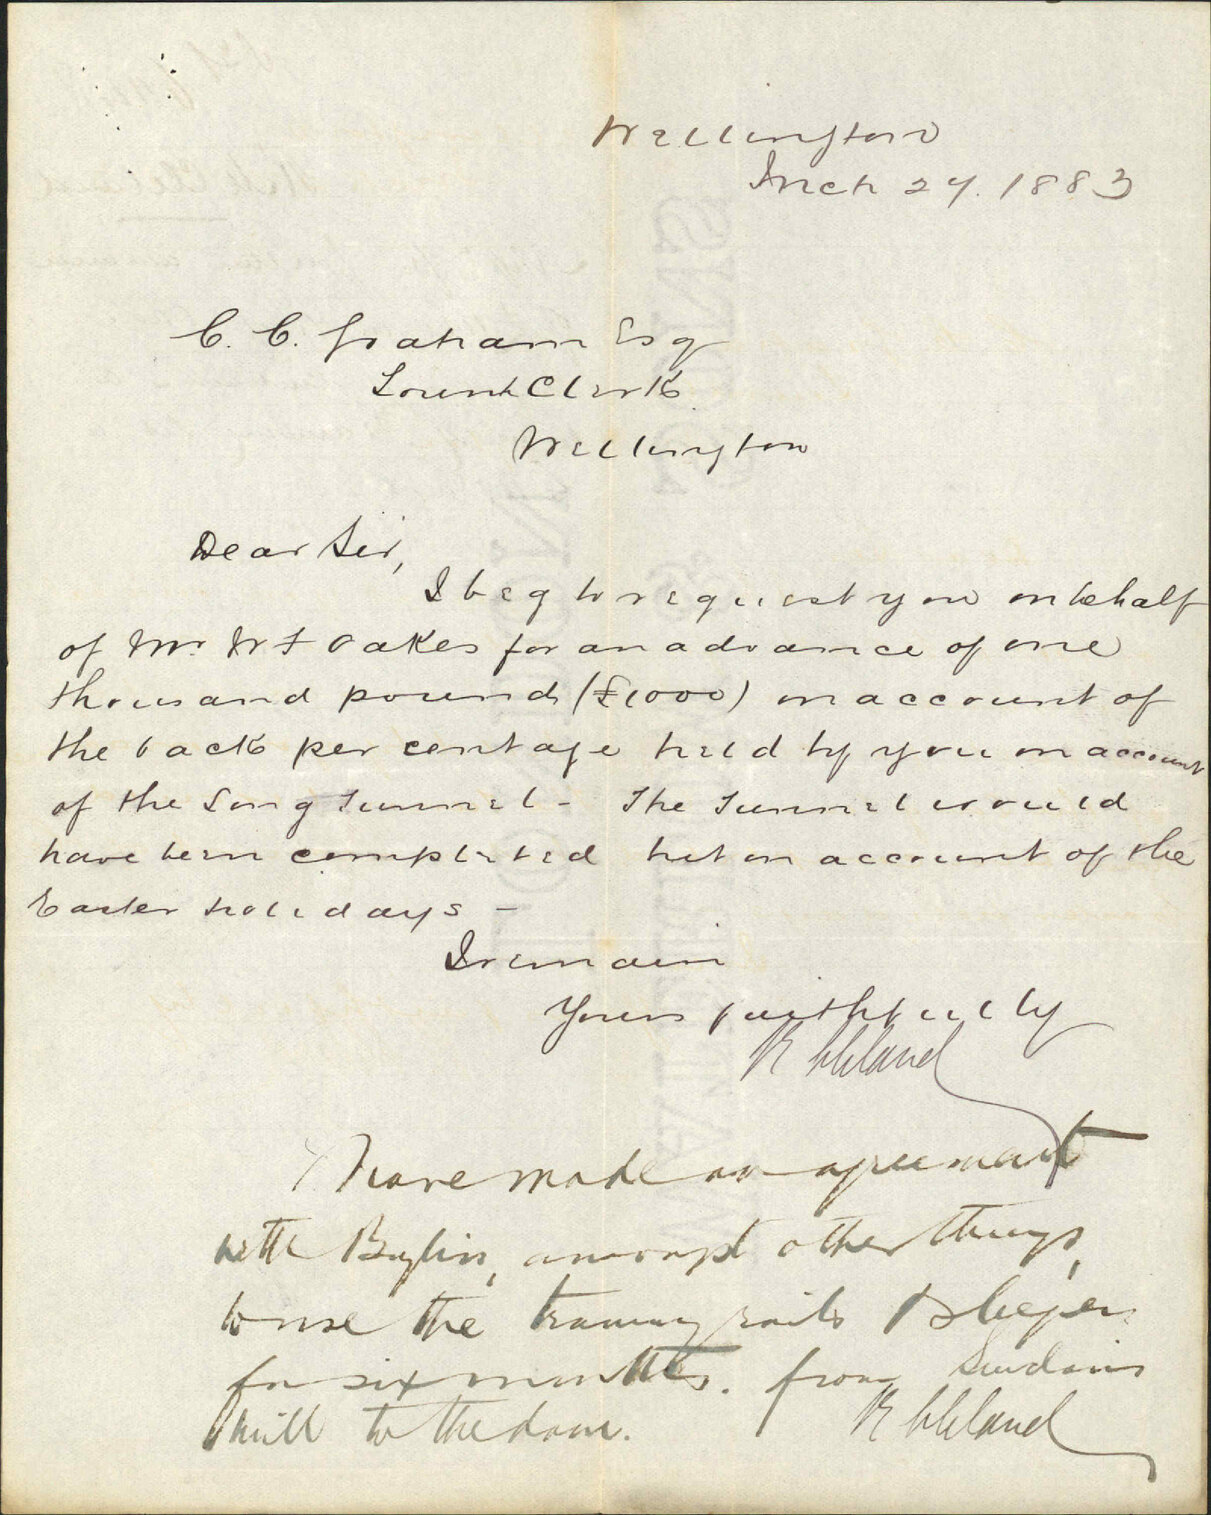 Wellington
Mch 27. 1883
C. C. Graham Esq
Town Clerk
Wellington
Dear Sir,
I beg to request you on behalf
of Mr W F Oakes for an advance of one
thousand pound (£1000) on account of
the back per centage held by you on account
of the Long Tunnel - The Tunnel would
have been completed but on account of the
Easter holidays -
I remain
Yours faithfully
R
I have made an agreement
with amongst other things,
to use the tramway rails & sleepers
for six months. from
mill to the dam.
R